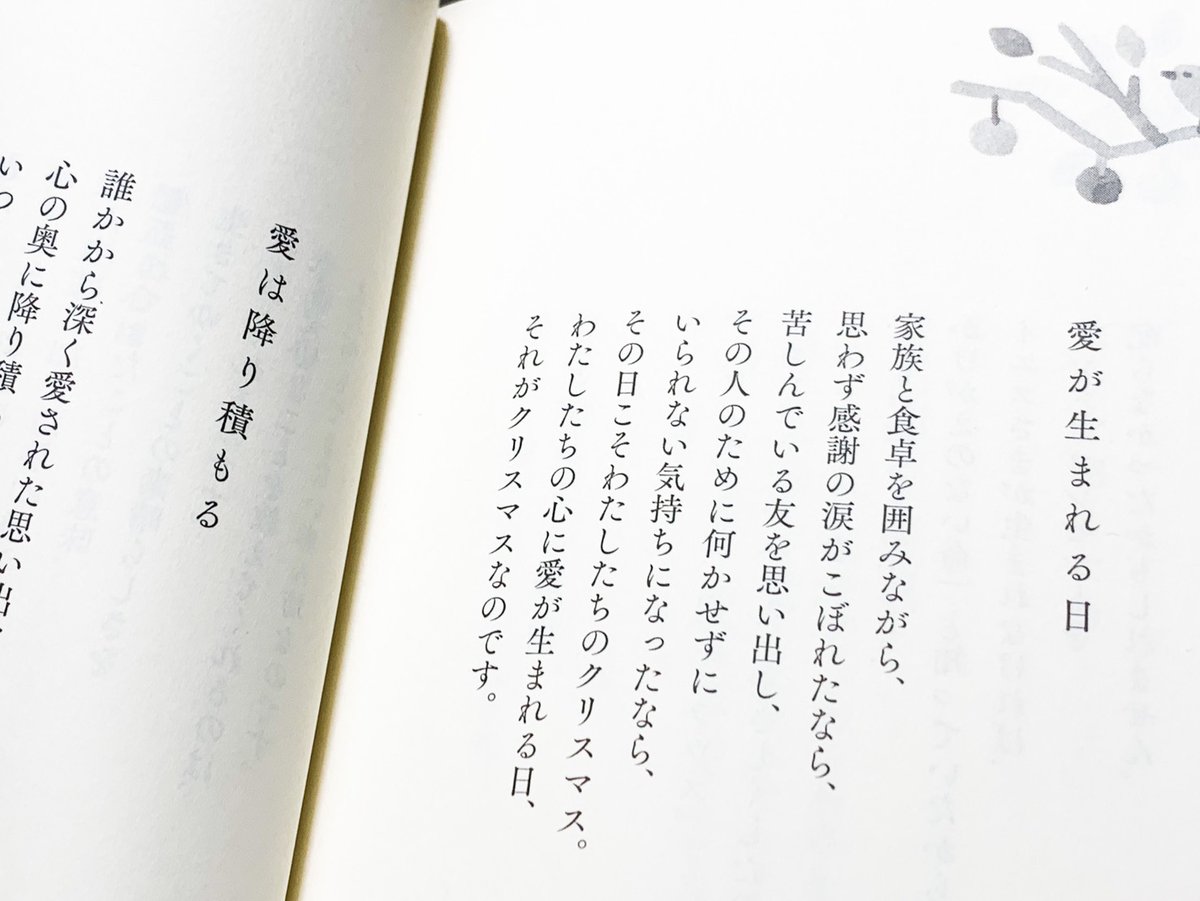 愛が生まれる日
家族と食卓を囲みながら、
思わず感謝の涙がこぼれたなら、
苦しんでいる友を思い出し、
その人のために何かせずに
いられない気持ちになったなら、
その日こそわたしたちのクリスマス。
わたしたちの心に愛が生まれる日、
それがクリスマスなのです。
愛は降り積もる
誰かから深く愛された思い出
心の奥に降り積
いつ